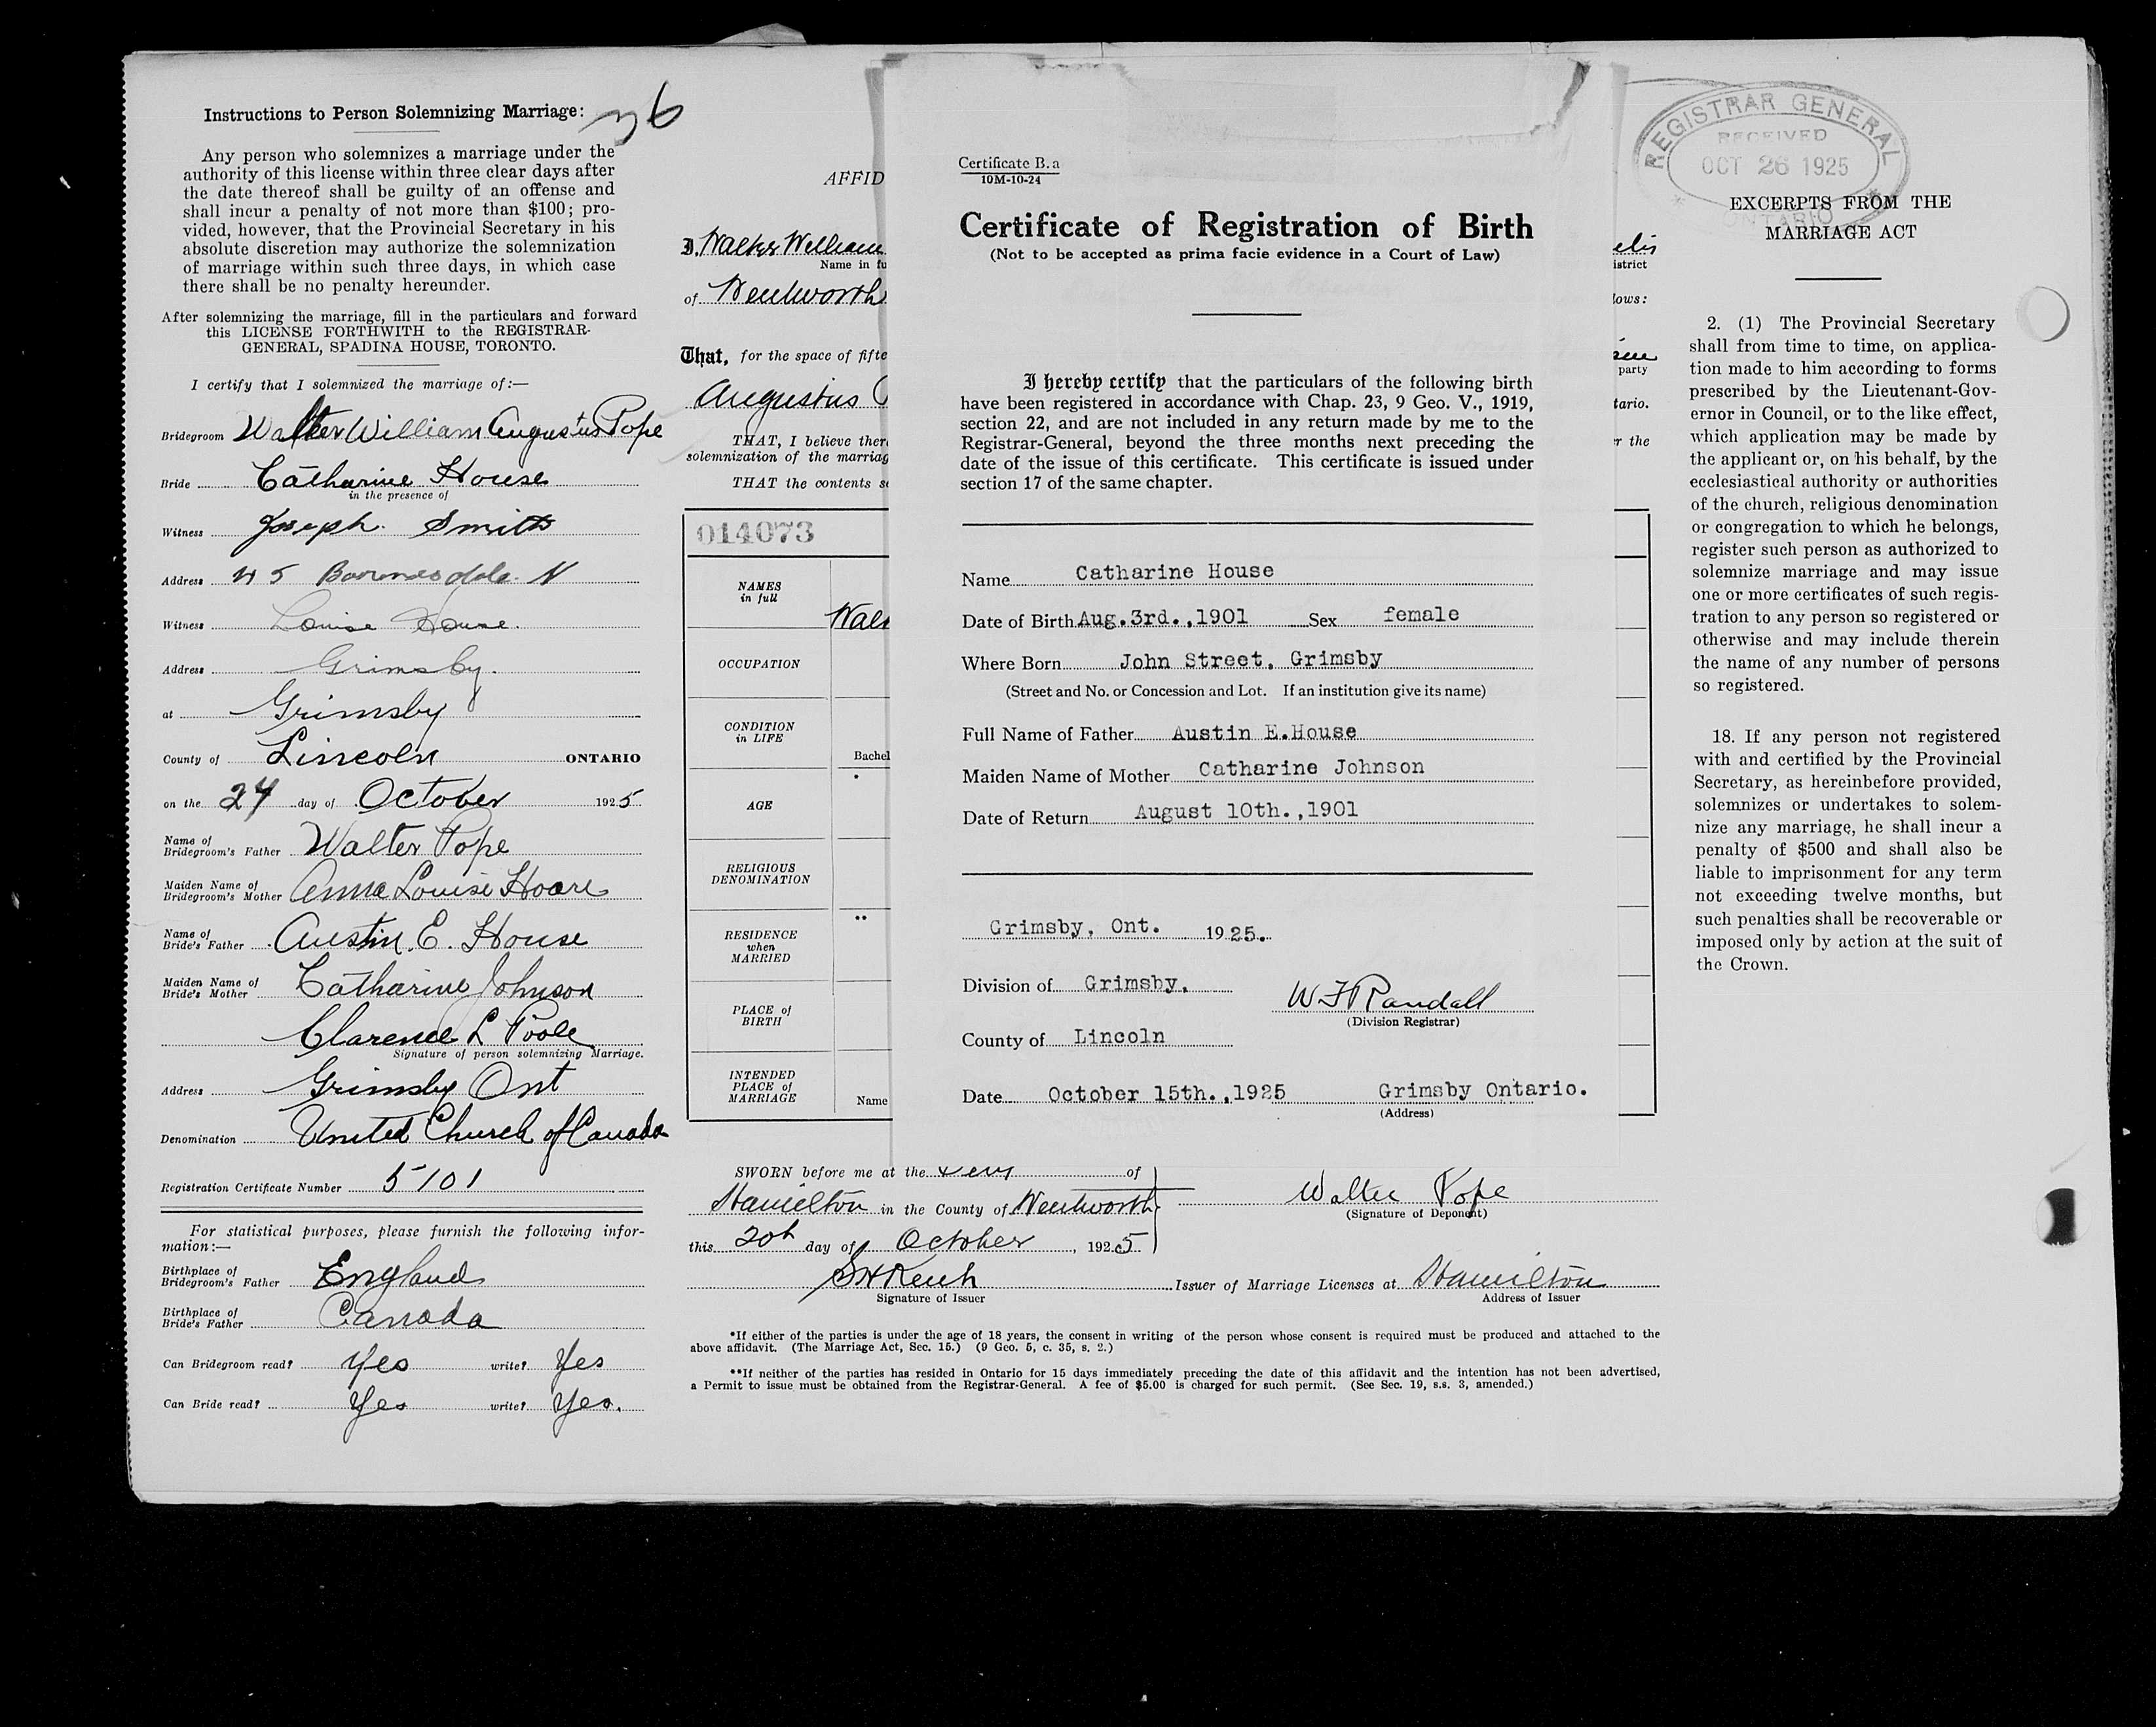 Instructions to Person Solemnizing Marriage:
36
Any person who solemnizes a marriage under the
authority of this license within three clear days after
the date thereof shall be guilty of an offense and
shall incur a penalty of not more than $100; pro-
vided, however, that the Provincial Secretary in his
absolute discretion may authorize the solemnization
of marriage within such three days, in which case
there shall be no penalty hereunder.
After solemnizing the marriage, fill in the particulars and forward
this LICENSE FORTHWITH to the REGISTRAR-
GENERAL, SPADINA HOUSE, TORONTO.
I certify that I solemnized the marriage of:—
Bridegroom Walter William Augustus Pope
Bride Catharine House
in the presence of
Witness Joseph Smith
Address
Witness Louise House.
Address Grimsby.
at Grimsby
County of Lincoln ONTARIO
on the 24 day of October 1925
Name of
Bridegroom's Father Walter Pope
Maiden Name of
Bridegroom's Mother Anna Louise Hoare
Name of
Bride's Father Austin E. House
Maiden Name of
Bride's Mother Catharine Johnson
Clarence L Poole
Signature of person solemnizing Marriage.
Address Grimsby Ont
Denomination United Church of Canada
Registration Certificate Number 5101
For statistical purposes, please furnish the following infor-
mation:—
Birthplace of
Bridegroom's Father England
Birthplace of
Bride's Father Canada
Can Bridegroom read? Yes write? Yes
Can Bride read? Yes write? Yes.
AFFID
I, Walter William
Name in fu
of Wentworth
That, for the space of fifte
Augustus P
THAT, I believe ther
solemnization of the marriag
THAT the contents s
014073
NAMES
in full
Walt
OCCUPATION
CONDITION
in LIFE
Bachel
*
AGE
RELIGIOUS
DENOMINATION
**
RESIDENCE
when
MARRIED
PLACE of
BIRTH
INTENDED
PLACE of
MARRIAGE
Name
Certificate B.a
10M-10-24
Certificate of Registration of Birth
(Not to be accepted as prima facie evidence in a Court of Law)
I hereby certify that the particulars of the following birth
have been registered in accordance with Chap. 23, 9 Geo. V., 1919,
section 22, and are not included in any return made by me to the
Registrar-General, beyond the three months next preceding the
date of the issue of this certificate. This certificate is issued under
section 17 of the same chapter.
Name Catharine House
Date of Birth Aug.3rd.,1901 Sex female
Where Born John Street, Grimsby
(Street and No. or Concession and Lot. If an institution give its name)
Full Name of Father Austin E.House
Maiden Name of Mother Catharine Johnson
Date of Return August 10th.,1901
Grimsby, Ont. 1925.
Division of Grimsby.
W F Randall
(Division Registrar)
County of Lincoln
Date October 15th.,1925 Grimsby Ontario.
(Address)
istrict
lows:
party
tario.
r the
SWORN before me at the City of
Hamilton in the County of Wentworth
this 20th day of October, 1925
Walter Pope
(Signature of Deponent)
Issuer of Marriage Licenses at Hamilton
Signature of Issuer Address of Issuer
*If either of the parties is under the age of 18 years, the consent in writing of the person whose consent is required must be produced and attached to the
above affidavit. (The Marriage Act, Sec. 15.) (9 Geo. 5, c. 35, s. 2.)
**If neither of the parties has resided in Ontario for 15 days immediately preceding the date of this affidavit and the intention has not been advertised,
a Permit to issue must be obtained from the Registrar-General. A fee of $5.00 is charged for such permit. (See Sec. 19, s.s. 3, amended.)
REGISTRAR GENERAL
RECEIVED
OCT 26 1925
* ONTARIO *
EXCERPTS FROM THE
MARRIAGE ACT
2. (1) The Provincial Secretary
shall from time to time, on applica-
tion made to him according to forms
prescribed by the Lieutenant-Gov-
ernor in Council, or to the like effect,
which application may be made by
the applicant or, on his behalf, by the
ecclesiastical authority or authorities
of the church, religious denomination
or congregation to which he belongs,
register such person as authorized to
solemnize marriage and may issue
one or more certificates of such regis-
tration to any person so registered or
otherwise and may include therein
the name of any number of persons
so registered.
18. If any person not registered
with and certified by the Provincial
Secretary, as hereinbefore provided,
solemnizes or undertakes to solem-
nize any marriage, he shall incur a
penalty of $500 and shall also be
liable to imprisonment for any term
not exceeding twelve months, but
such penalties shall be recoverable or
imposed only by action at the suit of
the Crown.